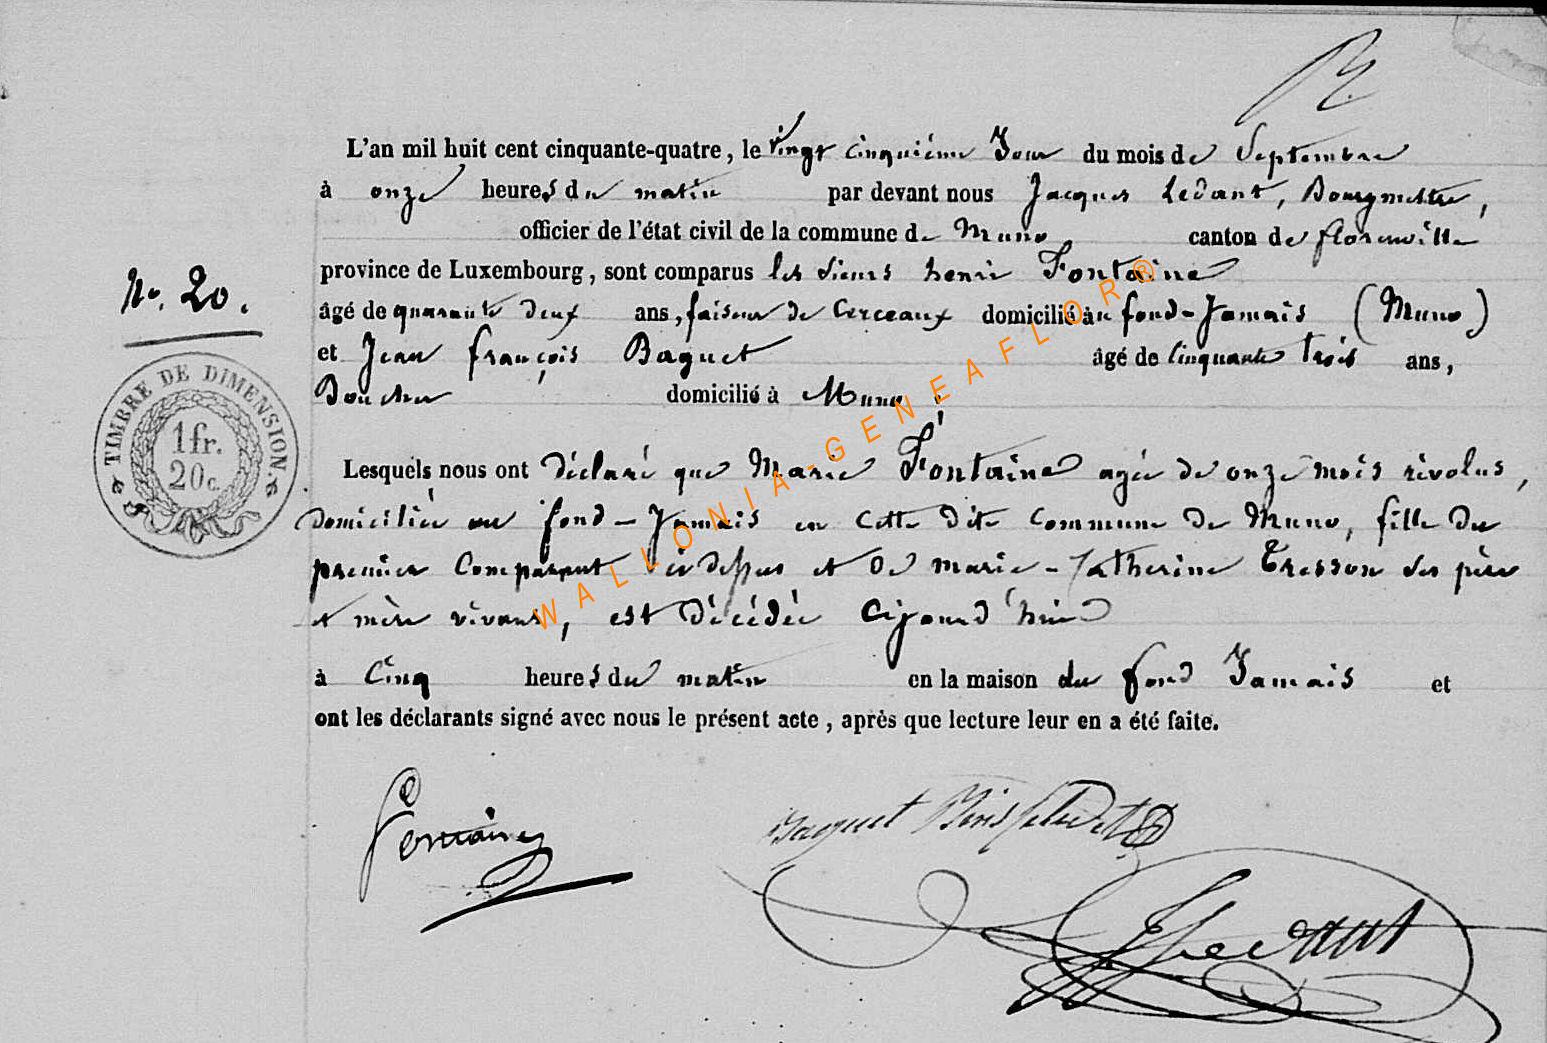 L'an mil huit cent cinquante-quatre, le vingt cinquième Jour du mois de Septembre
à onze heures du matin par devant nous Jacques Ledant, Bourgmestre,
officier de l'état civil de la commune de Muno canton de florenville
province de Luxembourg, sont comparus les sieurs henri Fontaine
No. 20.
âgé de quarante deux ans, faiseur de Cerceaux domicilié au fond-Jamais (Muno)
et Jean françois Baquet âgé de Cinquante trois ans,
Boucher domicilié à Muno ;
TIMBRE DE DIMENSION.
1 fr.
20 c.
Lesquels nous ont déclaré que Marie Fontaine agée de onze mois révolus,
domiciliée au fond-Jamais en cette dite commune de Muno, fille du
premier Comparant ci dessus et de marie-Catherine Tresson ses père
et mère vivans, est décédée Cejourd'hui
à Cinq heures du matin en la maison du fond Jamais et
ont les déclarants signé avec nous le présent acte, après que lecture leur en a été faite.
Fontaine
Baquet
Ledant
WALLONIA-GENEAFLOR®